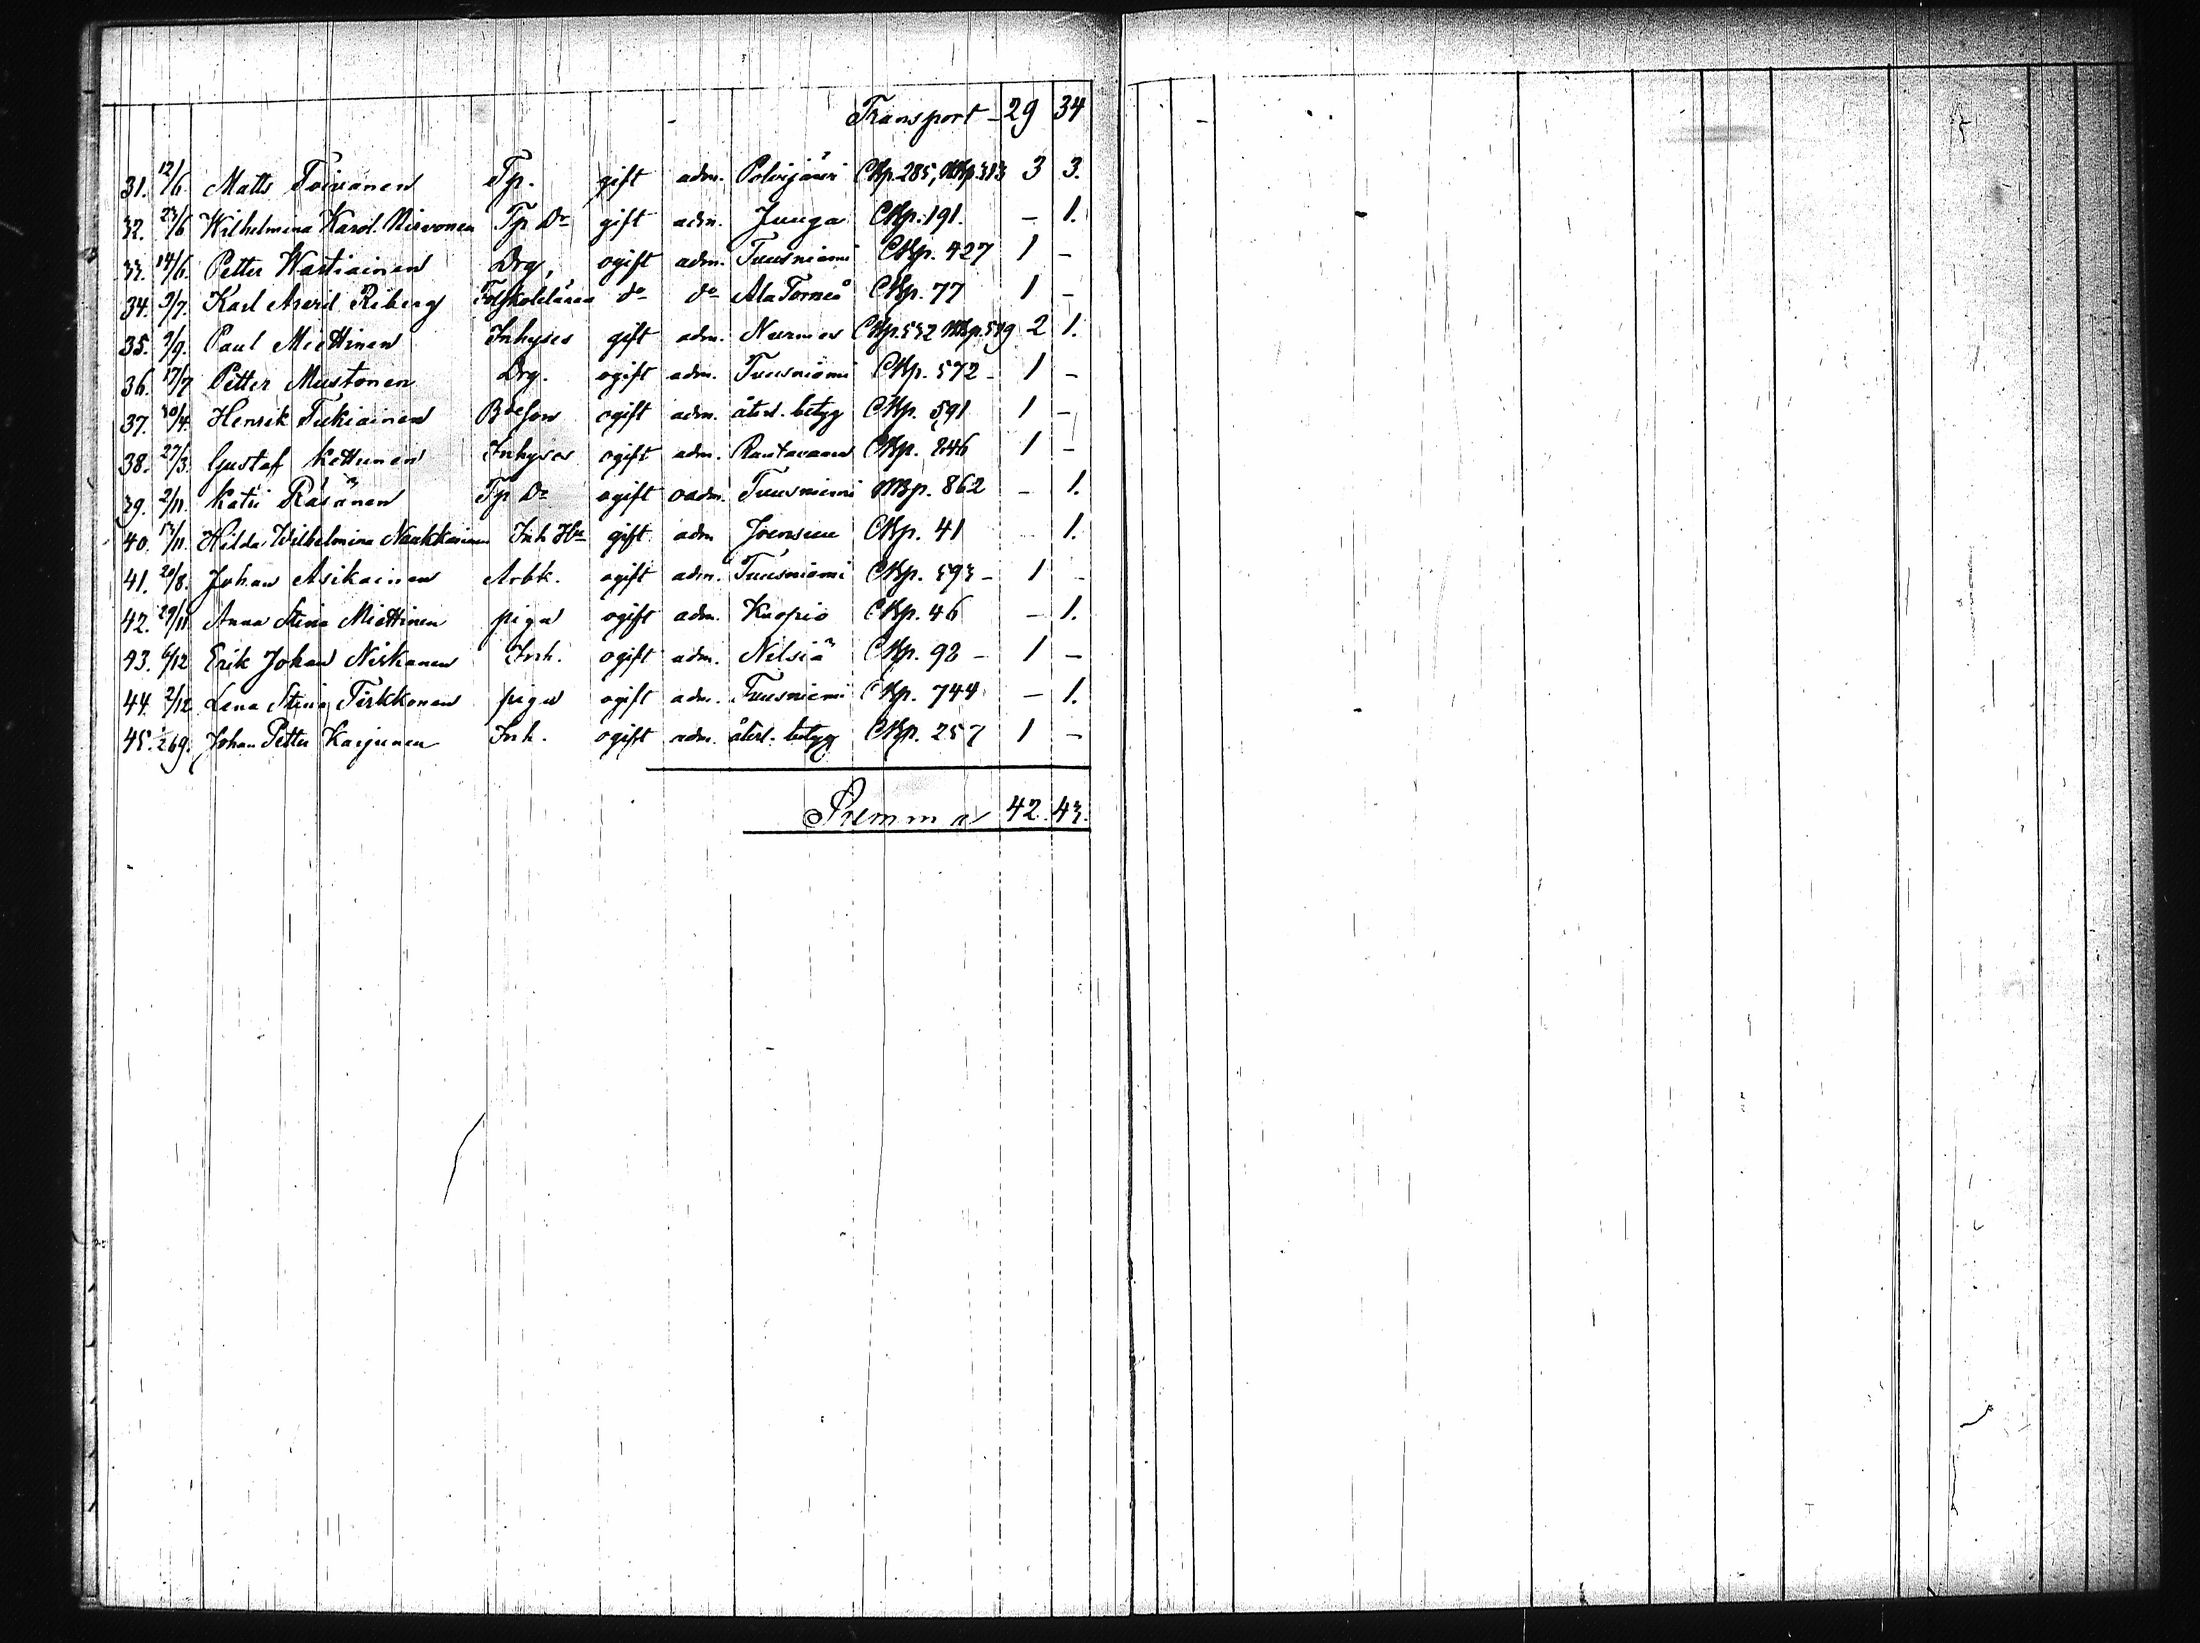 Transport — 29 34
31. 12/6. Matts Toivanen Tp. gift adm. Polvijärvi CBp. 285, MBp. 313 3 3.
32. 23/6 Wilhelmina Karol. Mirvonen Tp Dr gift adm. Juuga CBp. 191. — 1.
33. 14/6. Petter Wartiainen Drg, ogift adm. Tuusniemi CBp. 427 1 —
34. 3/7. Karl Arvid Riberg Folkskolelärare do do Ala Torneå CBp. 77 1 —
35. 9/9. Paul Miettinen Inhyses gift adm. Nurmes CBp. 532 MBp. 589 2 1.
36. 17/7 Petter Mustonen Drg. ogift adm. Tuusniemi CBp. 572 — 1 —
37. 30/4. Henrik Tukiainen Bde Son ogift adm. återl. betyg CBp. 591 1 —
38. 27/3. Gustaf Kettunen Inhyses ogift adm. Rautavaara CBp. 246 1 —
39. 2/11. Katri Räsänen Tp Dr ogift oadm. Tuusniemi MBp. 862 — 1.
40. 13/11. Hilda Wilhelmina Naukkarinen Inh Hu gift adm Joensuu CBp. 41 1.
41. 20/8. Johan Asikainen Arbk. ogift adm. Tuusniemi CBp. 593 — 1 —
42. 29/11 Anna Stina Miettinen piga ogift adm. Kuopio CBp. 46 — 1.
43. 6/12 Erik Johan Niskanen Inh. ogift adm. Nilsiä CBp. 92 — 1 —
44. 2/12 Lena Stina Tirkkonen piga ogift adm. Tuusniemi CBp. 744 — 1.
45. Johan Petter Karjunen Inh. ogift adm. återl. betyg CBp. 257 1 —
Summa 42. 43.